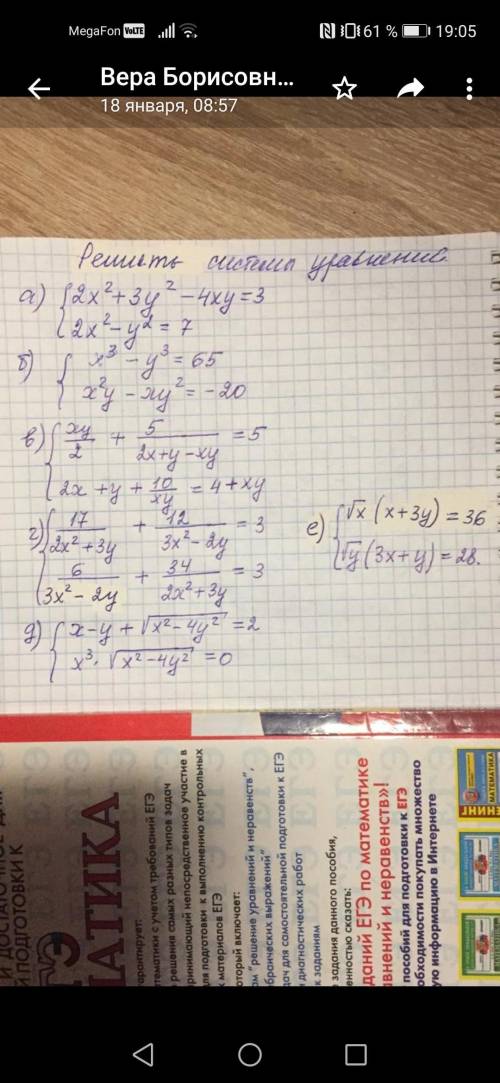 MegaFon VoLTE 61 % 19:05
Вера Борисовн...
18 января, 08:57
Решить системы уравнений
а) { 2x² + 3y² - 4xy = 3
2x² - y² = 7
б) { x³ - y³ = 65
x²y - xy² = -20
в) { xy/2 + 5/(2x+y-xy) = 5
2x + y + 10/xy = 4 + xy
г) { 17/(2x²+3y) + 12/(3x²-2y) = 3
6/(3x²-2y) + 34/(2x²+3y) = 3
д) { x-y + √(x²-4y²) = 2
x³ · √(x²-4y²) = 0
е) { √x (x+3y) = 36
√y (3x+y) = 28.
ПОДГОТОВКИ К
ЕГЭ
арантирует:
тематики с учетом требований ЕГЭ
решение самых разных типов задач
принимающий непосредственное участие в
для подготовки к выполнению контрольных
х материалов ЕГЭ
оторый включает:
ам "решение уравнений и неравенств",
ебраических выражений"
дач для самостоятельной подготовки к ЕГЭ
и диагностических работ
к заданиям
е задания данного пособия,
енностью сказать:
даний ЕГЭ по математике
авнений и неравенств»!
пособий для подготовки к ЕГЭ
обходимости покупать множество
ую информацию в Интернете
МАТЕМАТИКА